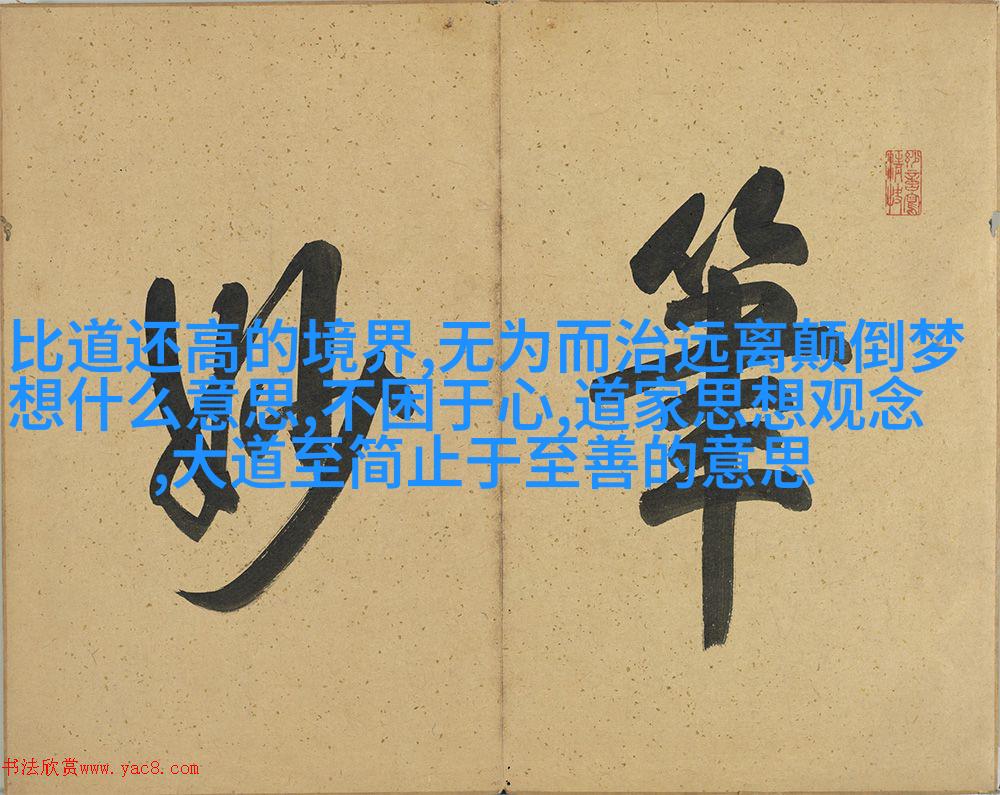 比道还高的境界,无为而治远离颠倒梦
想什么意思,不困于心,道家思想观念
,大道至简止于至善的意思
筆
妙
书法欣赏www.yac8.com